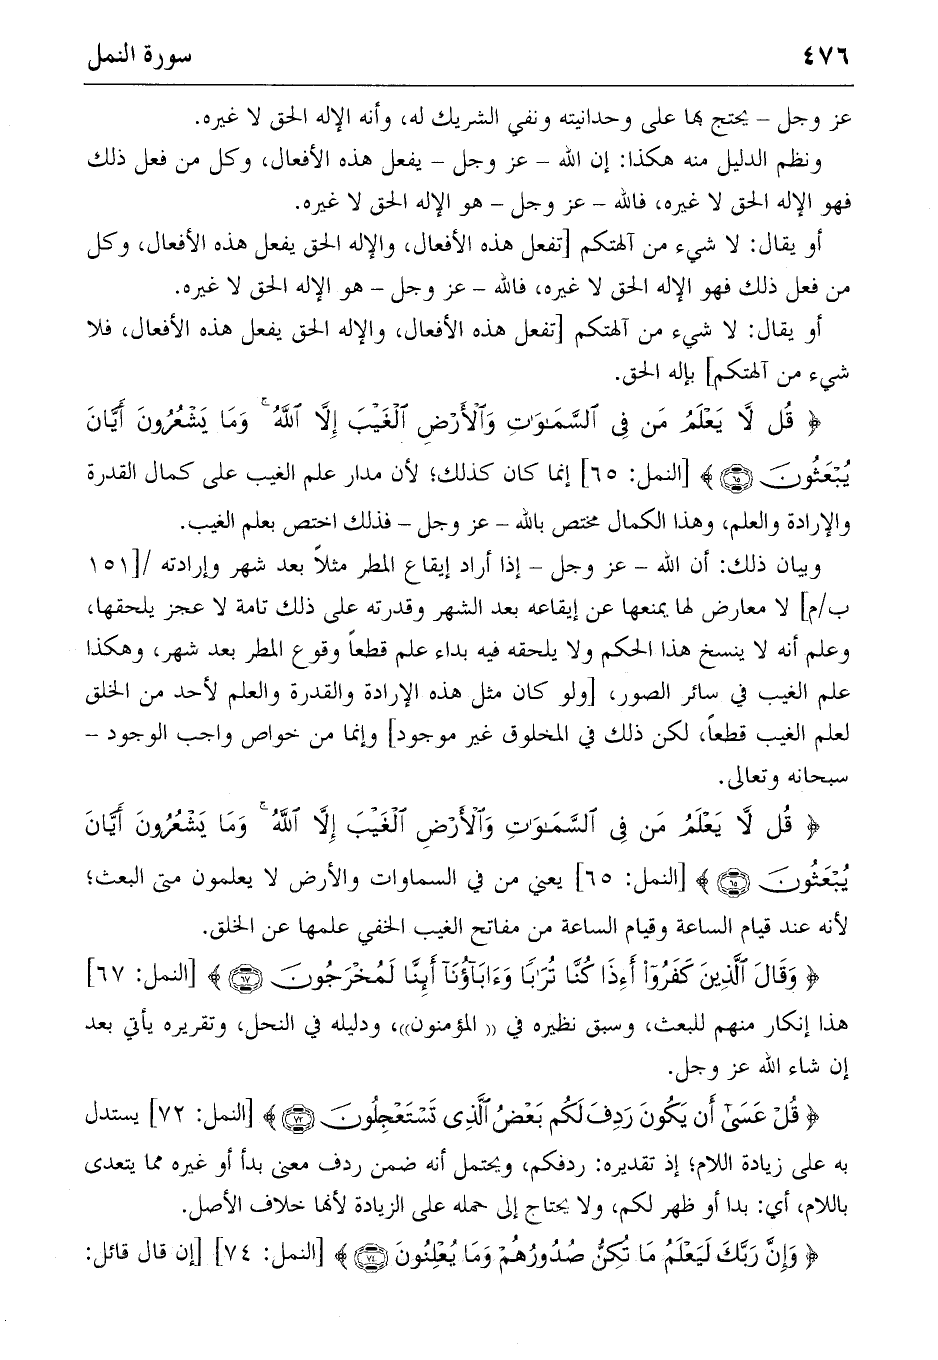 ٤٧٦ سورة النمل
عز وجل – يحتج بها على وحدانيته ونفي الشريك له، وأنه الإله الحق لا غيره.
ونظم الدليل منه هكذا: إن الله – عز وجل – يفعل هذه الأفعال، وكل من فعل ذلك
فهو الإله الحق لا غيره، فالله – عز وجل – هو الإله الحق لا غيره.
أو يقال: لا شيء من آلهتكم [تفعل هذه الأفعال، والإله الحق يفعل هذه الأفعال، وكل
من فعل ذلك فهو الإله الحق لا غيره، فالله – عز وجل – هو الإله الحق لا غيره.
أو يقال: لا شيء من آلهتكم [تفعل هذه الأفعال، والإله الحق يفعل هذه الأفعال، فلا
شيء من آلهتكم] بإله الحق.
﴿ قُل لَّا يَعْلَمُ مَن فِى ٱلسَّمَـٰوَٰتِ وَٱلْأَرْضِ ٱلْغَيْبَ إِلَّا ٱللَّهُ ۚ وَمَا يَشْعُرُونَ أَيَّانَ
يُبْعَثُونَ ۝٦٥ ﴾ [النمل: ٦٥] إنما كان كذلك؛ لأن مدار علم الغيب على كمال القدرة
والإرادة والعلم، وهذا الكمال مختص بالله – عز وجل – فذلك اختص بعلم الغيب.
وبيان ذلك: أن الله – عز وجل – إذا أراد إيقاع المطر مثلاً بعد شهر وإرادته /[١٥١
ب/م] لا معارض لها يمنعها عن إيقاعه بعد الشهر وقدرته على ذلك تامة لا عجز يلحقها،
وعلم أنه لا ينسخ هذا الحكم ولا يلحقه فيه بداء علم قطعاً وقوع المطر بعد شهر، وهكذا
علم الغيب في سائر الصور، [ولو كان مثل هذه الإرادة والقدرة والعلم لأحد من الخلق
لعلم الغيب قطعاً، لكن ذلك في المخلوق غير موجود] وإنما من خواص واجب الوجود –
سبحانه وتعالى.
﴿ قُل لَّا يَعْلَمُ مَن فِى ٱلسَّمَـٰوَٰتِ وَٱلْأَرْضِ ٱلْغَيْبَ إِلَّا ٱللَّهُ ۚ وَمَا يَشْعُرُونَ أَيَّانَ
يُبْعَثُونَ ۝٦٥ ﴾ [النمل: ٦٥] يعني من في السماوات والأرض لا يعلمون متى البعث؛
لأنه عند قيام الساعة وقيام الساعة من مفاتح الغيب الخفي علمها عن الخلق.
﴿ وَقَالَ ٱلَّذِينَ كَفَرُوٓا۟ أَءِذَا كُنَّا تُرَٰبًا وَءَابَآؤُنَآ أَئِنَّا لَمُخْرَجُونَ ۝٦٧ ﴾ [النمل: ٦٧]
هذا إنكار منهم للبعث، وسبق نظيره في «المؤمنون»، ودليله في النحل، وتقريره يأتي بعد
إن شاء الله عز وجل.
﴿ قُلْ عَسَىٰٓ أَن يَكُونَ رَدِفَ لَكُم بَعْضُ ٱلَّذِى تَسْتَعْجِلُونَ ۝٧٢ ﴾ [النمل: ٧٢] يستدل
به على زيادة اللام؛ إذ تقديره: ردفكم، ويحتمل أنه ضمن ردف معنى بدأ أو غيره مما يتعدى
باللام، أي: بدا أو ظهر لكم، ولا يحتاج إلى حمله على الزيادة لأنها خلاف الأصل.
﴿ وَإِنَّ رَبَّكَ لَيَعْلَمُ مَا تُكِنُّ صُدُورُهُمْ وَمَا يُعْلِنُونَ ۝٧٤ ﴾ [النمل: ٧٤] [إن قال قائل: